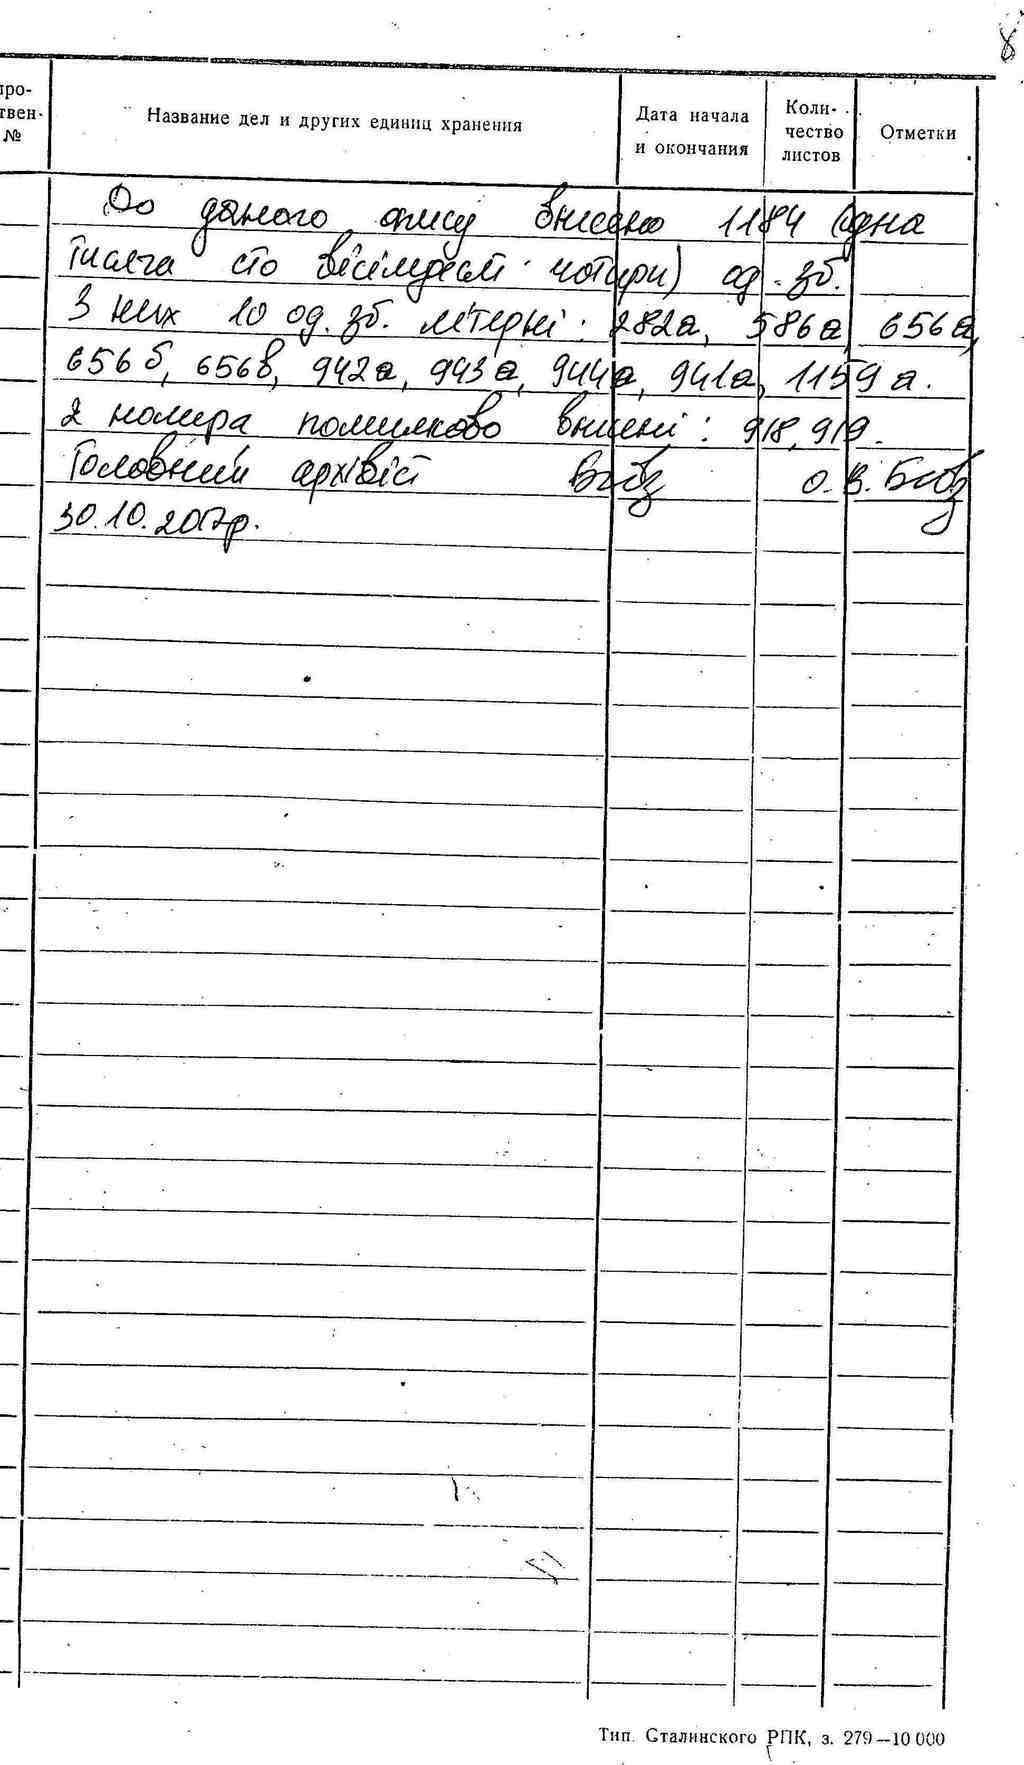 8
про-
твен-
№
Название дел и других единиц хранения
Дата начала
и окончания
Коли-
чество
листов
Отметки
До даного опису внесено 1184 (одна
тисяча сто вісімдесят чотири) од. зб.
З них 10 од. зб. літерні: 282а, 586а, 656а,
656б, 656в, 942а, 943а, 944а, 941а, 1159а.
2 номера помилково внесені: 918, 919.
Головний архівіст О.В.
30.10.2017р.
Тип. Сталинского РПК, з. 279—10 000